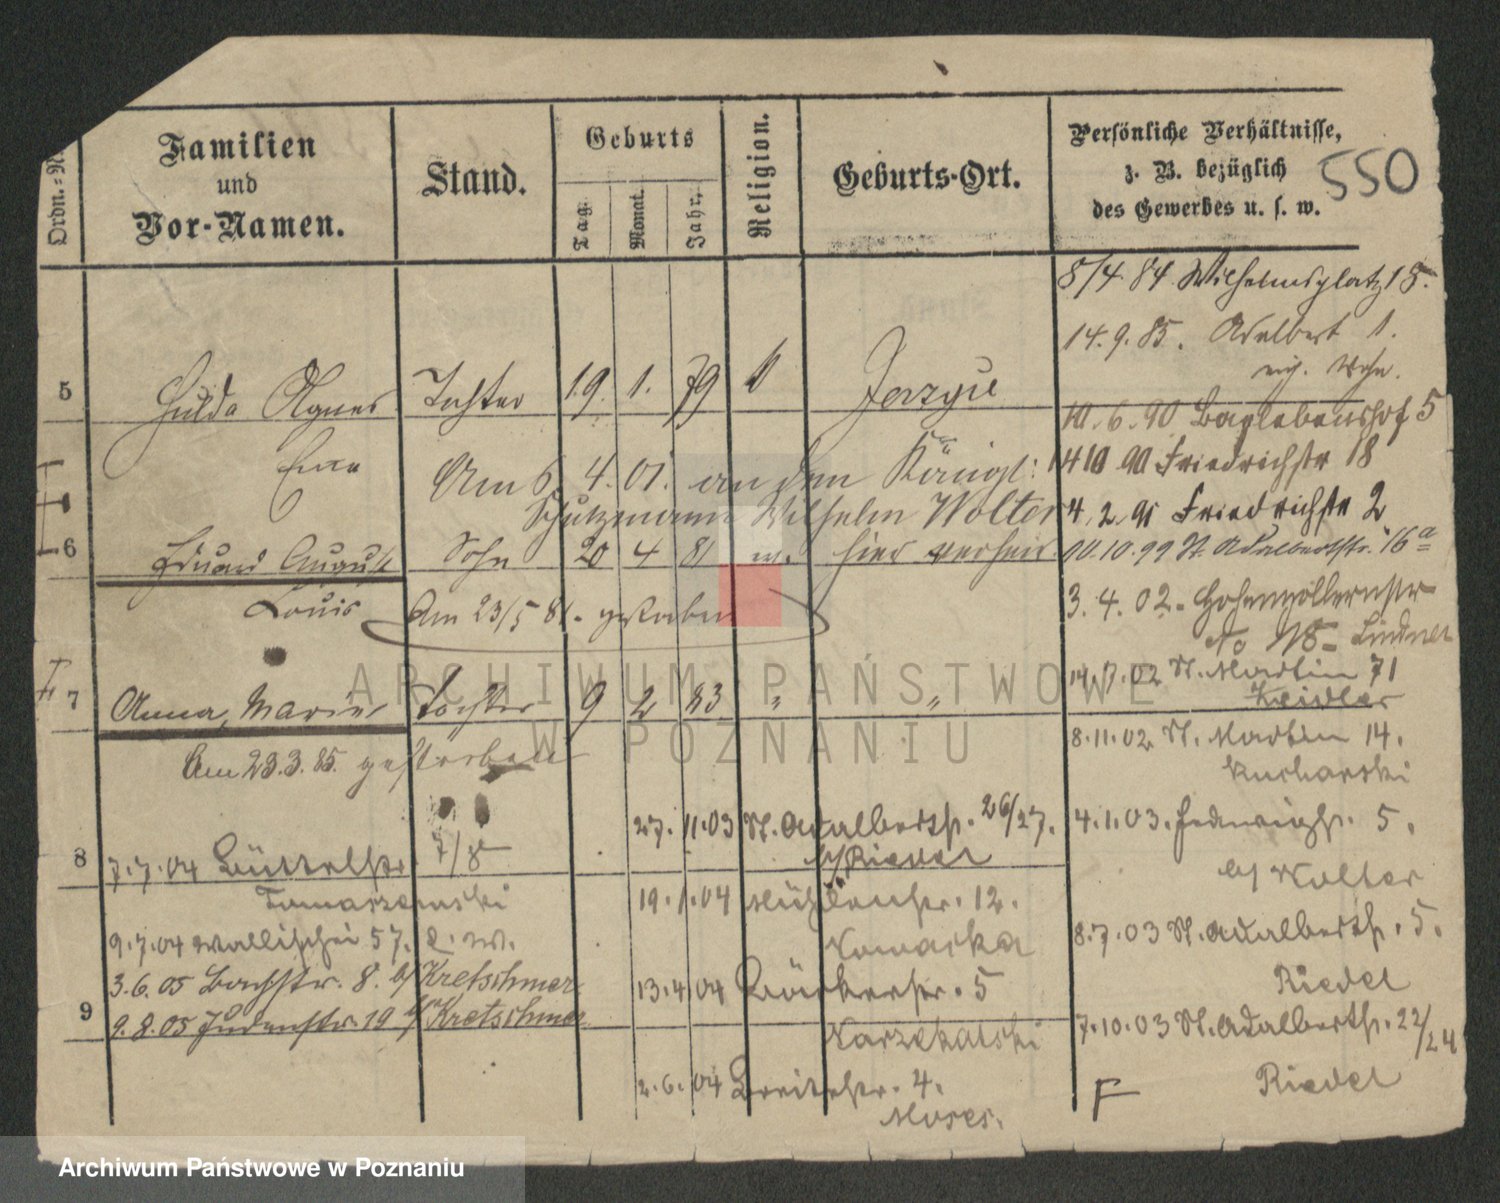 Ordn.-N
Familien
und
Vor-Namen.
Stand.
Geburts
Tag.
Monat.
Jahr.
Religion.
Geburts-Ort.
Persönliche Verhältnisse,
z. B. bezüglich
des Gewerbes u. s. w.
550
8/4 84 Wilhelmsplatz 18.
14.9.85. Adalbert 1.
5 Hulda Agnes Tochter 19. 1. 79 Jerzyce
10.6.90 5
Am 6. 4. 01. an den Königl:
14 10 90 Friedrichstr 18
Schutzmann Wilhelm Wolter
4.2.91 Friedrichstr 2
6 Eduard August Sohn 20 4 81 hier verheir.
10.10.99 St. Adalbertstr. 16a
Louis Am 23/5 81. gestorben
3.4.02. Hohenzollernstr
No Lindner
7 Anna, Marie Tochter 9 2 83 " "
14.7.02 St. Martin 71
Zeidler
Am 23.3.85. gestorben
8.11.02 St. Martin 14.
Kucharski
27.11.03 St. Adalbertstr. 26/27.
b/ Riedel
4.1.03. Hedwigstr. 5.
b/ Wolter
8 7.7.04 Büttelstr. 7/8
19.1.04 Mühlenstr. 12.
9.7.04 Wallischei 57.
8.7.03 St. Adalbertstr. 5.
Riedel
3.6.05 Bachstr. 8. b/ Kretschmer
13.4.04 5
9 9.8.05 Judenstr. 19 b/ Kretschmer
7.10.03 St. Adalbertstr. 22/24
Riedel
2.6.04 Breitestr. 4.
Moses.
F
ARCHIWUM PAŃSTWOWE
W POZNANIU
Archiwum Państwowe w Poznaniu